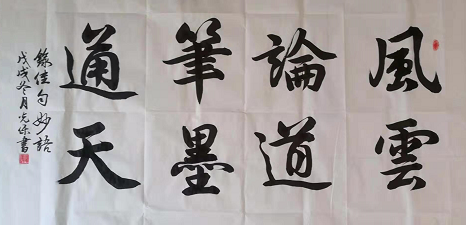 風雲
論道
筆墨
通天
錄佳句妙語
戊戌冬月光味書